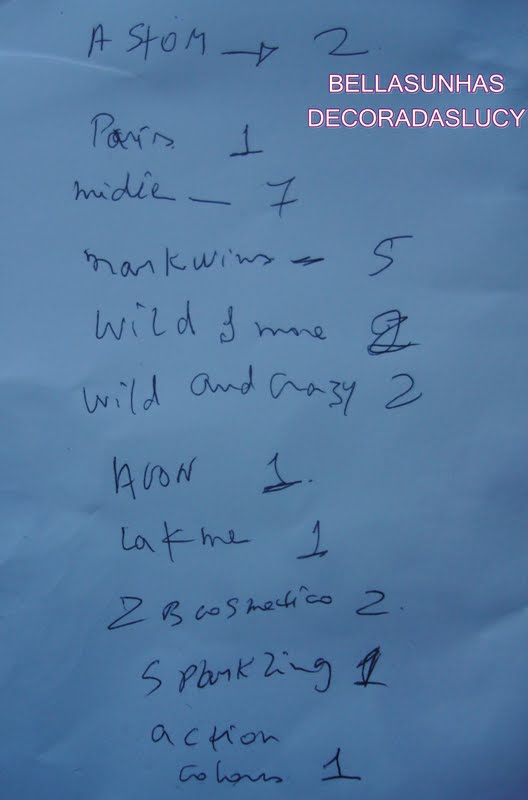 A Stom → 2
BELLASUNHAS
DECORADASLUCY
Paris 1
midie - 7
markwins - 5
Wild & more 2
Wild and crazy 2
AVON 1.
Lakme 1
2 B cosmetico 2.
Sparkling 1
action
colours 1